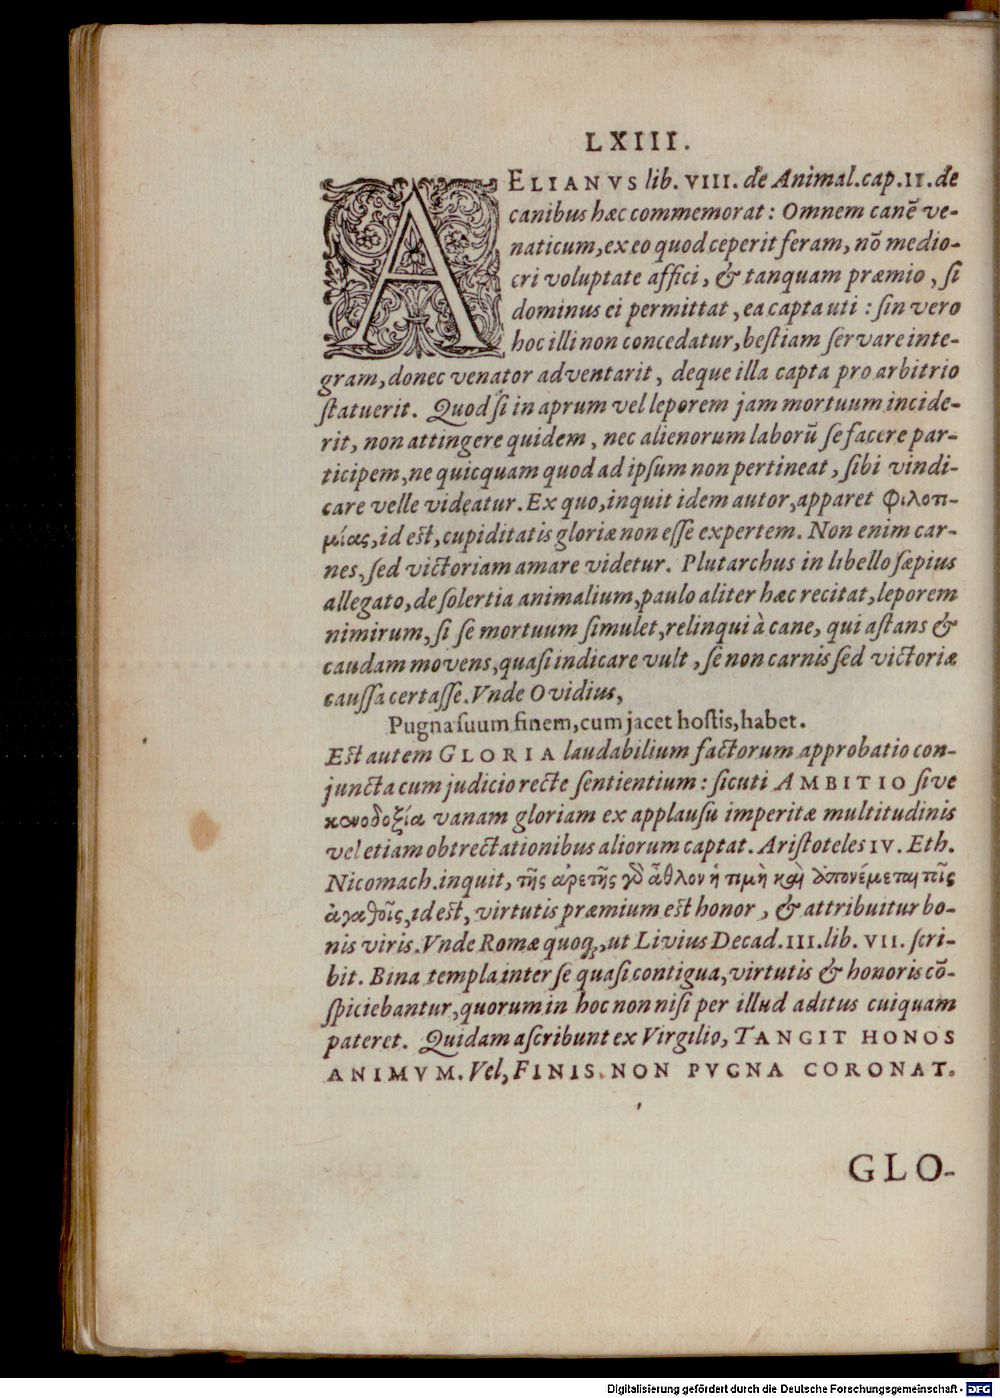 LXIII.
AELIANVS lib. VIII. de Animal. cap. II. de
canibus hæc commemorat: Omnem canẽ ve-
naticum, ex eo quod ceperit feram, nõ medio-
cri voluptate affici, & tanquam præmio, ſi
dominus ei permittat, ea capta uti: ſin vero
hoc illi non concedatur, beſtiam ſervare inte-
gram, donec venator adventarit, deque illa capta pro arbitrio
ſtatuerit. Quod ſi in aprum vel leporem jam mortuum incide-
rit, non attingere quidem, nec alienorum laborũ ſe facere par-
ticipem, ne quicquam quod ad ipſum non pertineat, ſibi vindi-
care velle videatur. Ex quo, inquit idem autor, apparet φιλοτι-
μίας, id eſt, cupiditatis gloriæ non eſſe expertem. Non enim car-
nes, ſed victoriam amare videtur. Plutarchus in libello ſæpius
allegato, de ſolertia animalium, paulo aliter hæc recitat, leporem
nimirum, ſi ſe mortuum ſimulet, relinqui à cane, qui aſtans &
caudam movens, quaſi indicare vult, ſe non carnis ſed victoriæ
cauſſa certaſſe. Vnde Ovidius,
Pugna ſuum finem, cum jacet hoſtis, habet.
Eſt autem GLORIA laudabilium factorum approbatio con-
juncta cum judicio recte ſentientium: ſicuti AMBITIO ſive
κενοδοξία vanam gloriam ex applauſu imperitæ multitudinis
vel etiam obtrectationibus aliorum captat. Ariſtoteles IV. Eth.
Nicomach. inquit, τῆς ἀρετῆς γὸ ἆθλον ἡ τιμὴ καὶ ἀπονέμεται τοῖς
ἀγαθοῖς, id eſt, virtutis præmium eſt honor, & attribuitur bo-
nis viris. Vnde Romæ quoq;, ut Livius Decad. III. lib. VII. ſcri-
bit. Bina templa inter ſe quaſi contigua, virtutis & honoris cõ-
ſpiciebantur, quorum in hoc non niſi per illud aditus cuiquam
pateret. Quidam aſcribunt ex Virgilio, TANGIT HONOS
ANIMVM. Vel, FINIS. NON PVGNA CORONAT.
GLO-
Digitalisierung gefördert durch die Deutsche Forschungsgemeinschaft - DFG